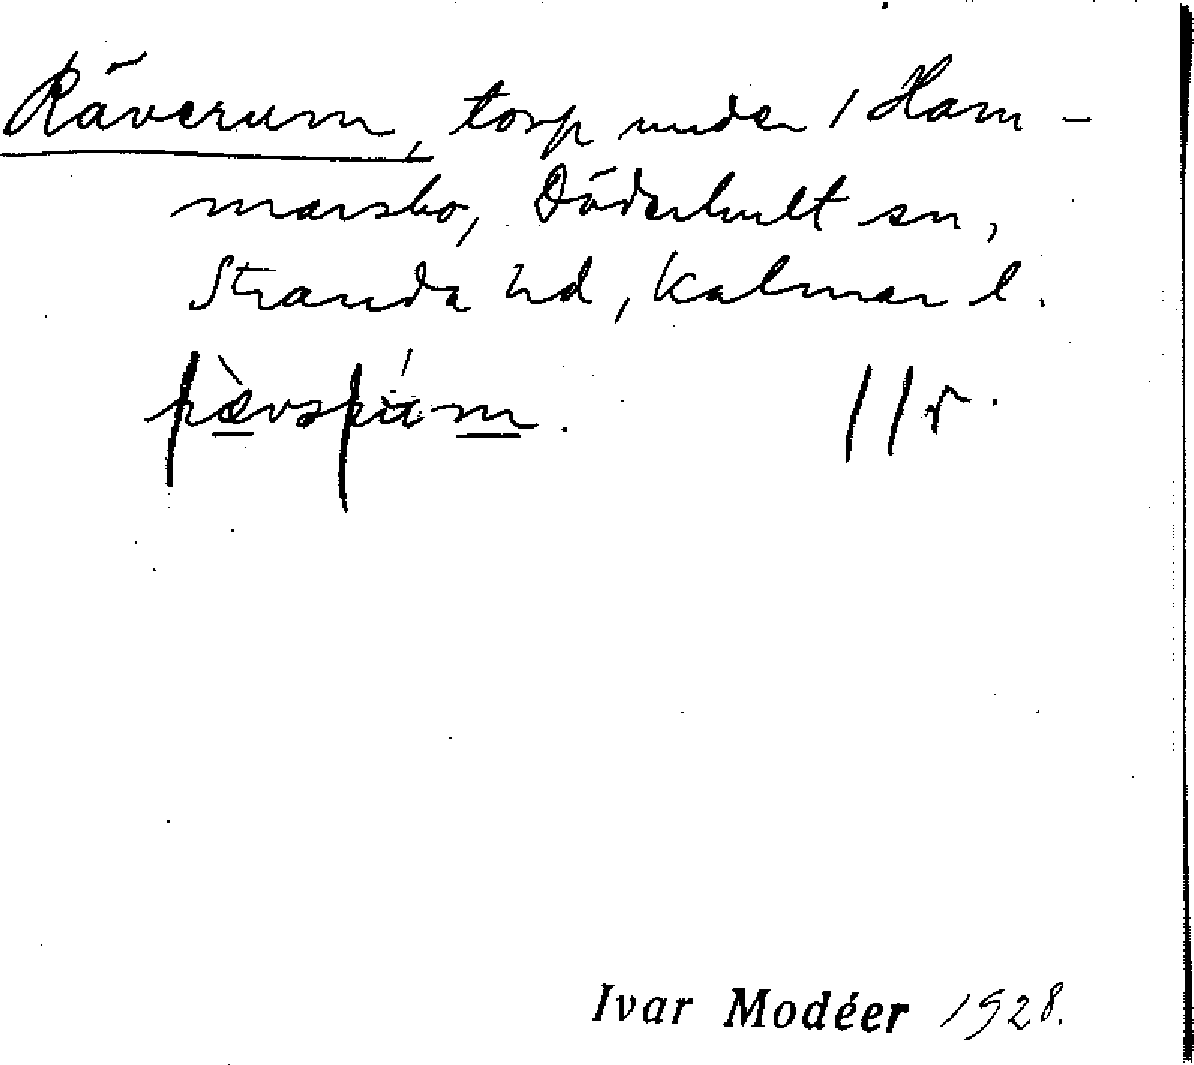 Räverum, torp under 1 Ham-
marsbo, Döderhult sn,
Stranda hd, Kalmar l.
// r.
Ivar Modéer 1928.